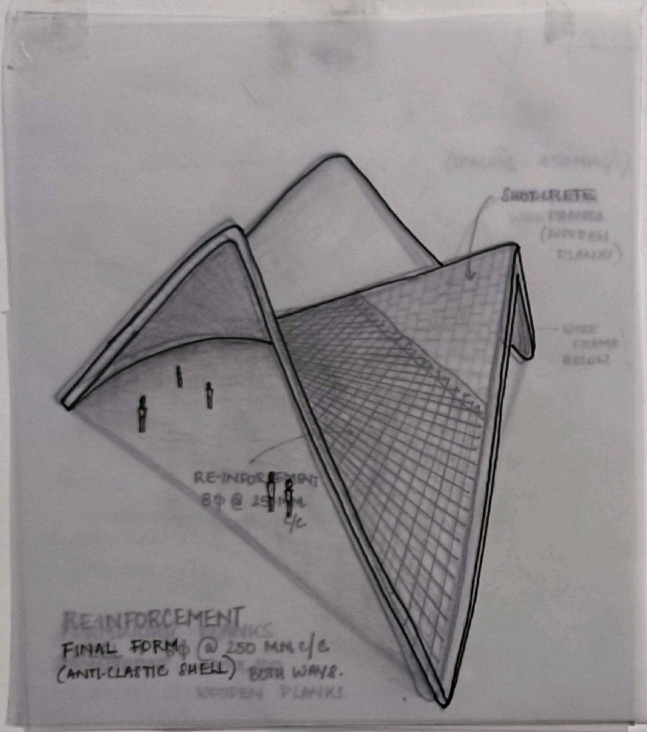 (SPACING 450MM
SHOTCRETE
(WOODEN
PLANKS)
WIRE
FRAME
BELOW
RE-INFORCEMENT
8Φ @ 25 MM
C/C
RE-INFORCEMENT
PLANKS
FINAL FORM Φ @ 250 MM C/C
(ANTI-CLASTIC SHELL) BOTH WAYS.
WOODEN PLANKS